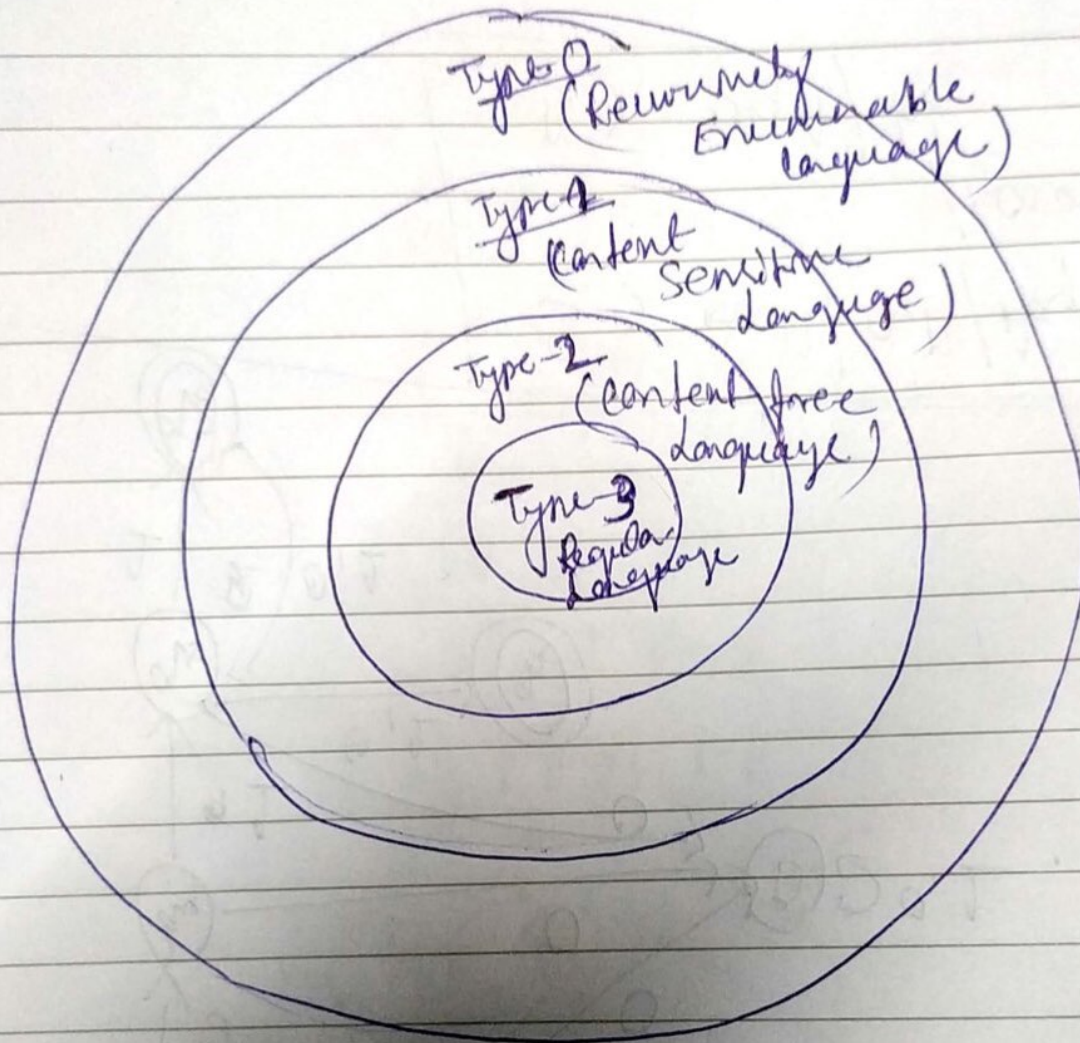 Type-0
(Recursively
Enumerable
language)
Type-1
(Content
Sensitive
Language)
Type-2
(Content free
Language)
Type-3
Regular
Language